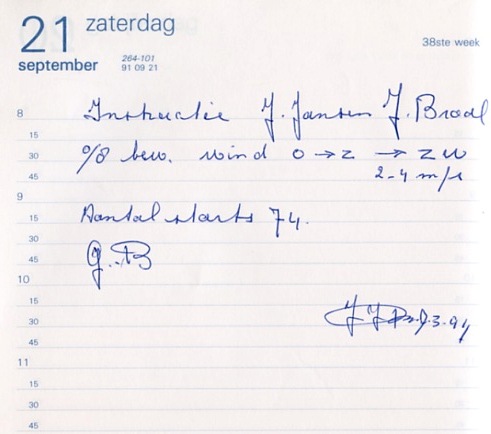 21 zaterdag
september
264-101
91 09 21
38ste week
8 Instructie J. Jansen J. Brad
15
30 0/8 bew. wind O → Z → ZW
45 2-4 m/s
9
15 Aantal starts 74.
30
45 G.B
10
15
30
45
11
15
30
45